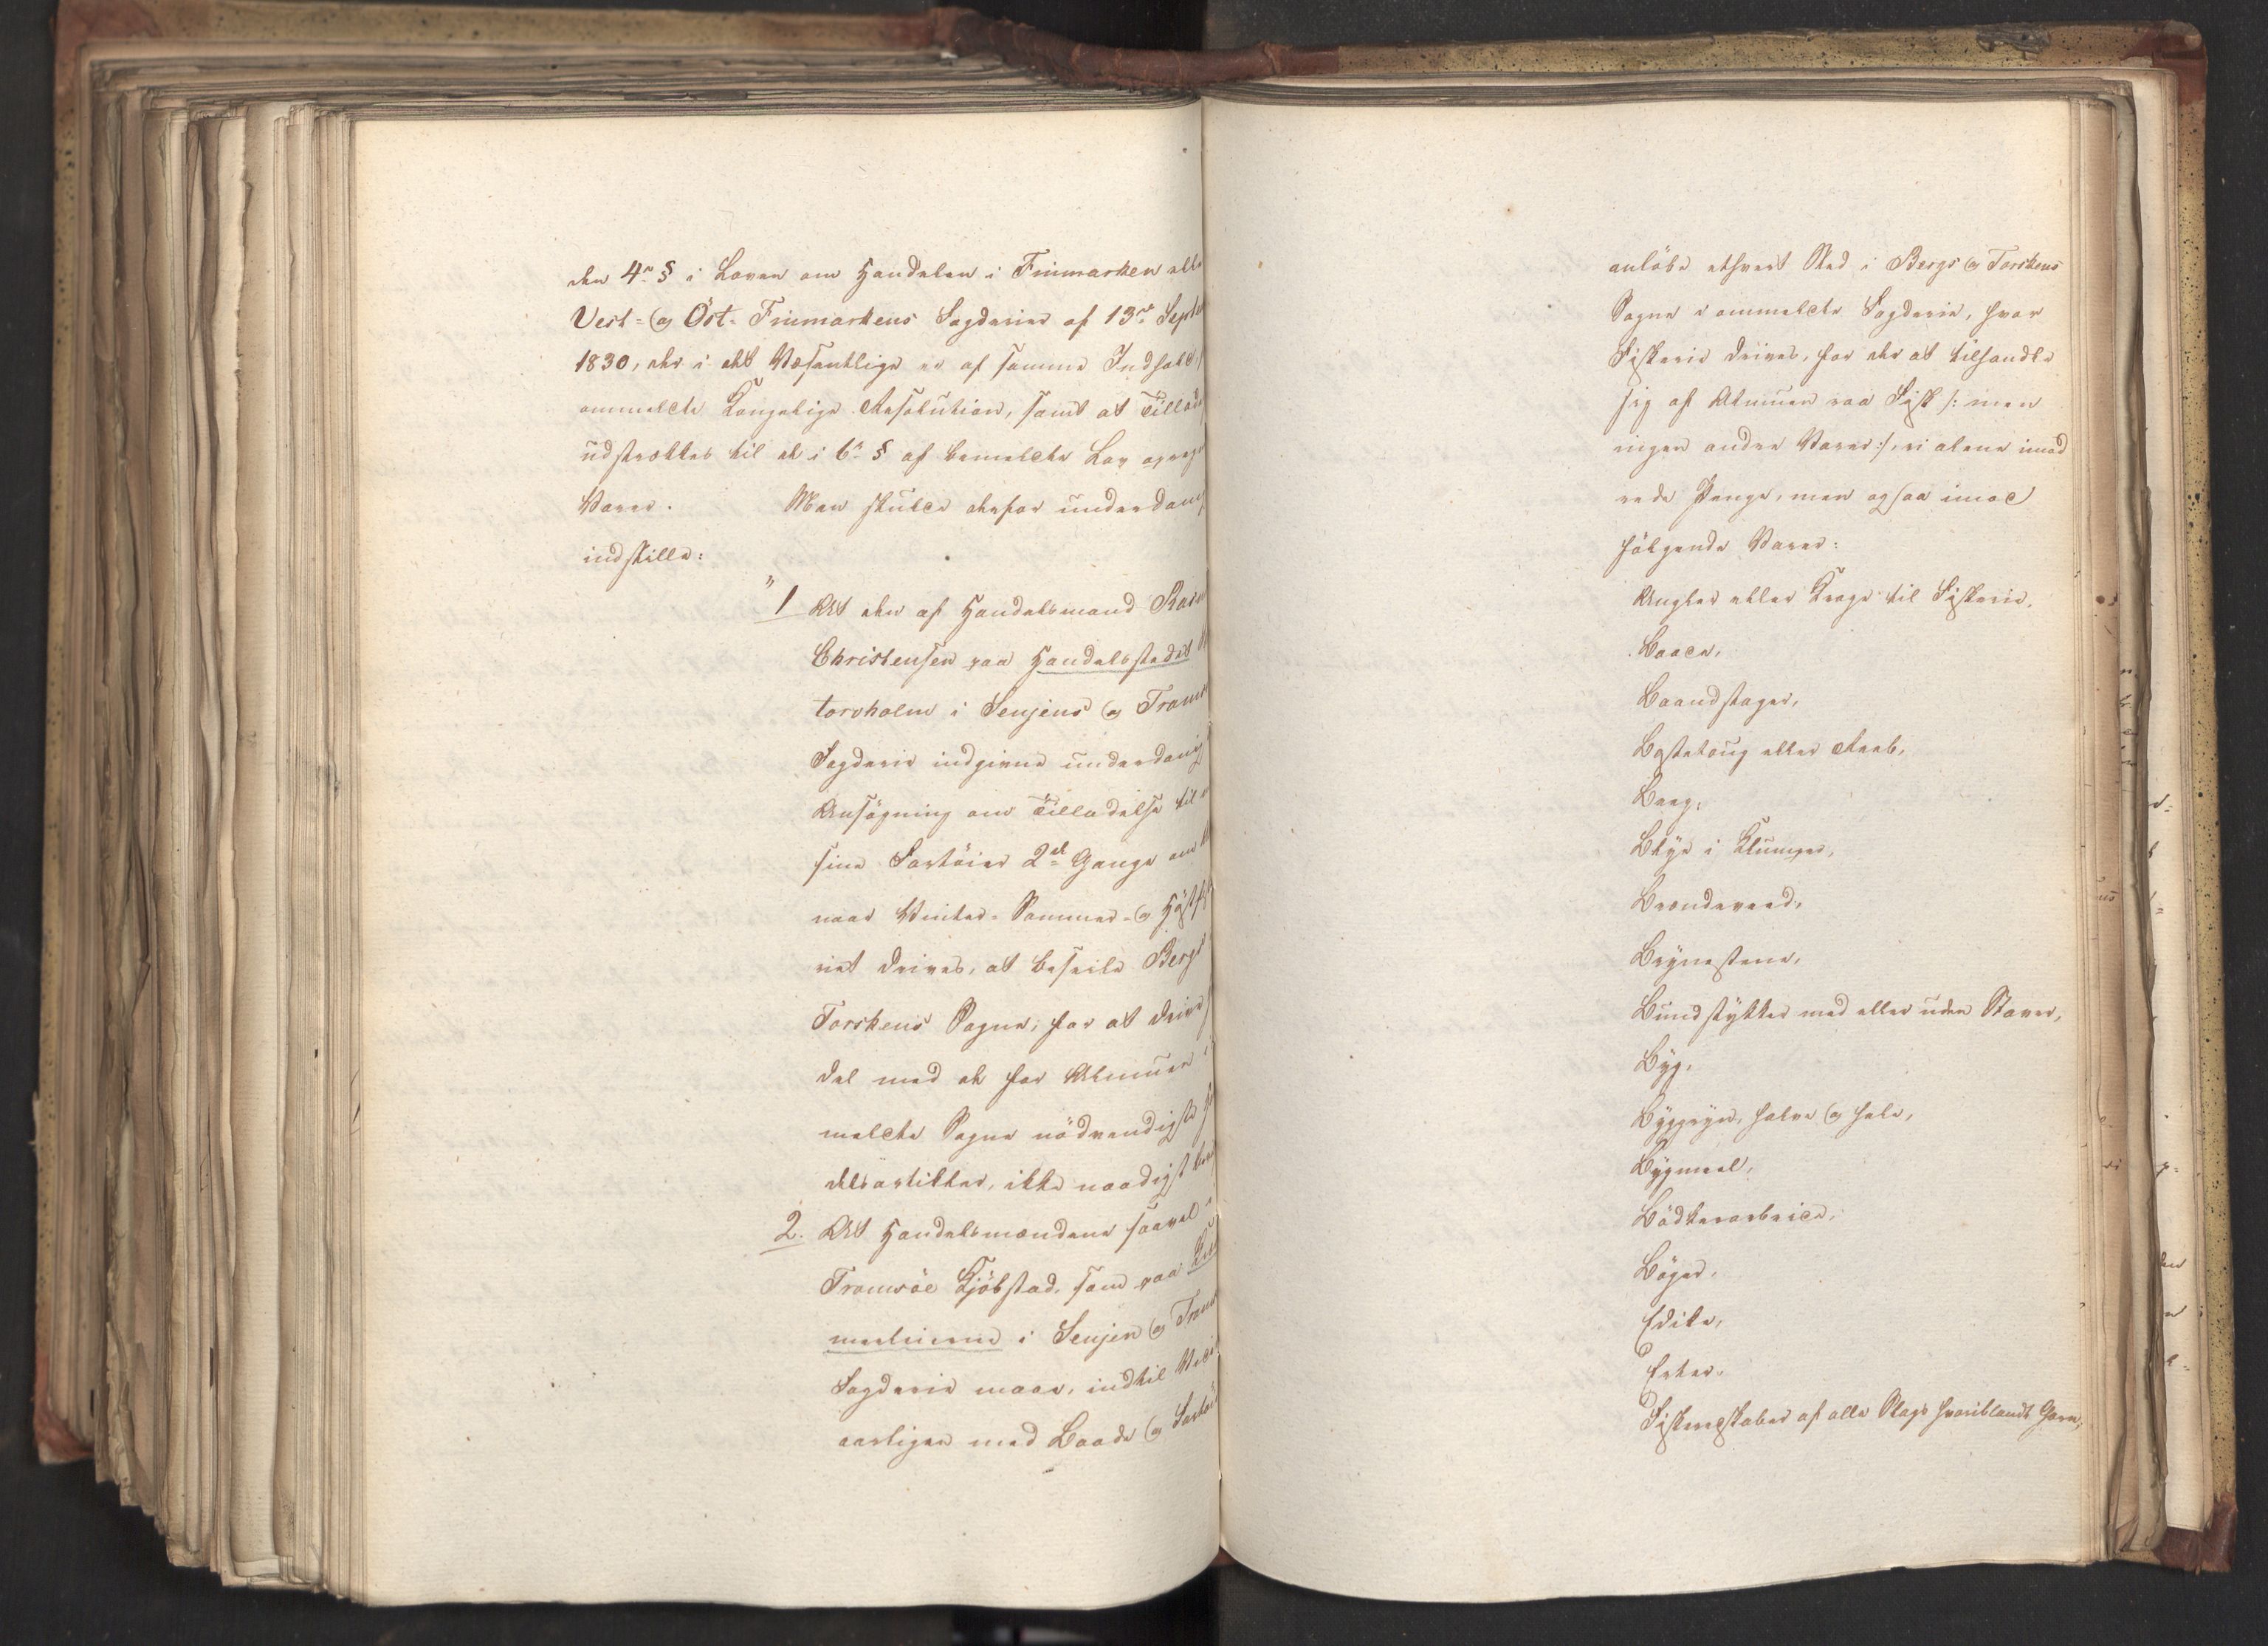 den 4de § i Loven om Handelen i Finmarken eller
Vest- og Öst-Finmarkens Fogderier af 13de Septbr
1830, der i det Væsentlige er af samme Indhold
ommeldte Kongelige Resolution, samt at Tillade
udstrækkes til de i 6te § af bemeldte Lov
Varer. Man skulde derfor underdan
indstille:
"1 At den af Handelsmand
Christensen paa Handelsstedet
torvholm i Senjens og Troms
Fogderie indgivne underdanig
Ansøgning om Tilladelse til
sine Fartöier 2de Gange om
naar Vinter- Sommer- og Höstfi
riet drives, at beseile Bergs
Torskens Sogne, for at drive
del med de for Almuen i
meldte Sogne nödvendigste
delsartikler, ikke naadigst
2. At Handelsmændene saavel i
Tromsöe Kjöbstad, som paa
i Senjen og Troms
Fogderie maae, indtil
aarligen med Baade og Fartöi
anlöbe ethvert Sted i Bergs og Torskens
Sogne i ommeldte Fogderie, hvor
Fiskerie drives, for der at tilhandle
sig af Almuen raa Fisk /: men
ingen andre Varer:/, ei alene imod
rede Penge, men ogsaa imod
fölgende Varer:
Angler eller Kroge til Fiskerie,
Baand,
Baandstager,
Bastetoug eller Reeb,
Beeg,
Blye i Klumper,
Brændeveed,
Brynestene,
Bundstykker med eller uden Staver,
Byg,
Byggryn, halve og hele,
Bygmeel,
Bödkerarbeide,
Böger,
Edike,
Erter,
Fiskeredskaber af alle Slags hvoriblandt Garn,